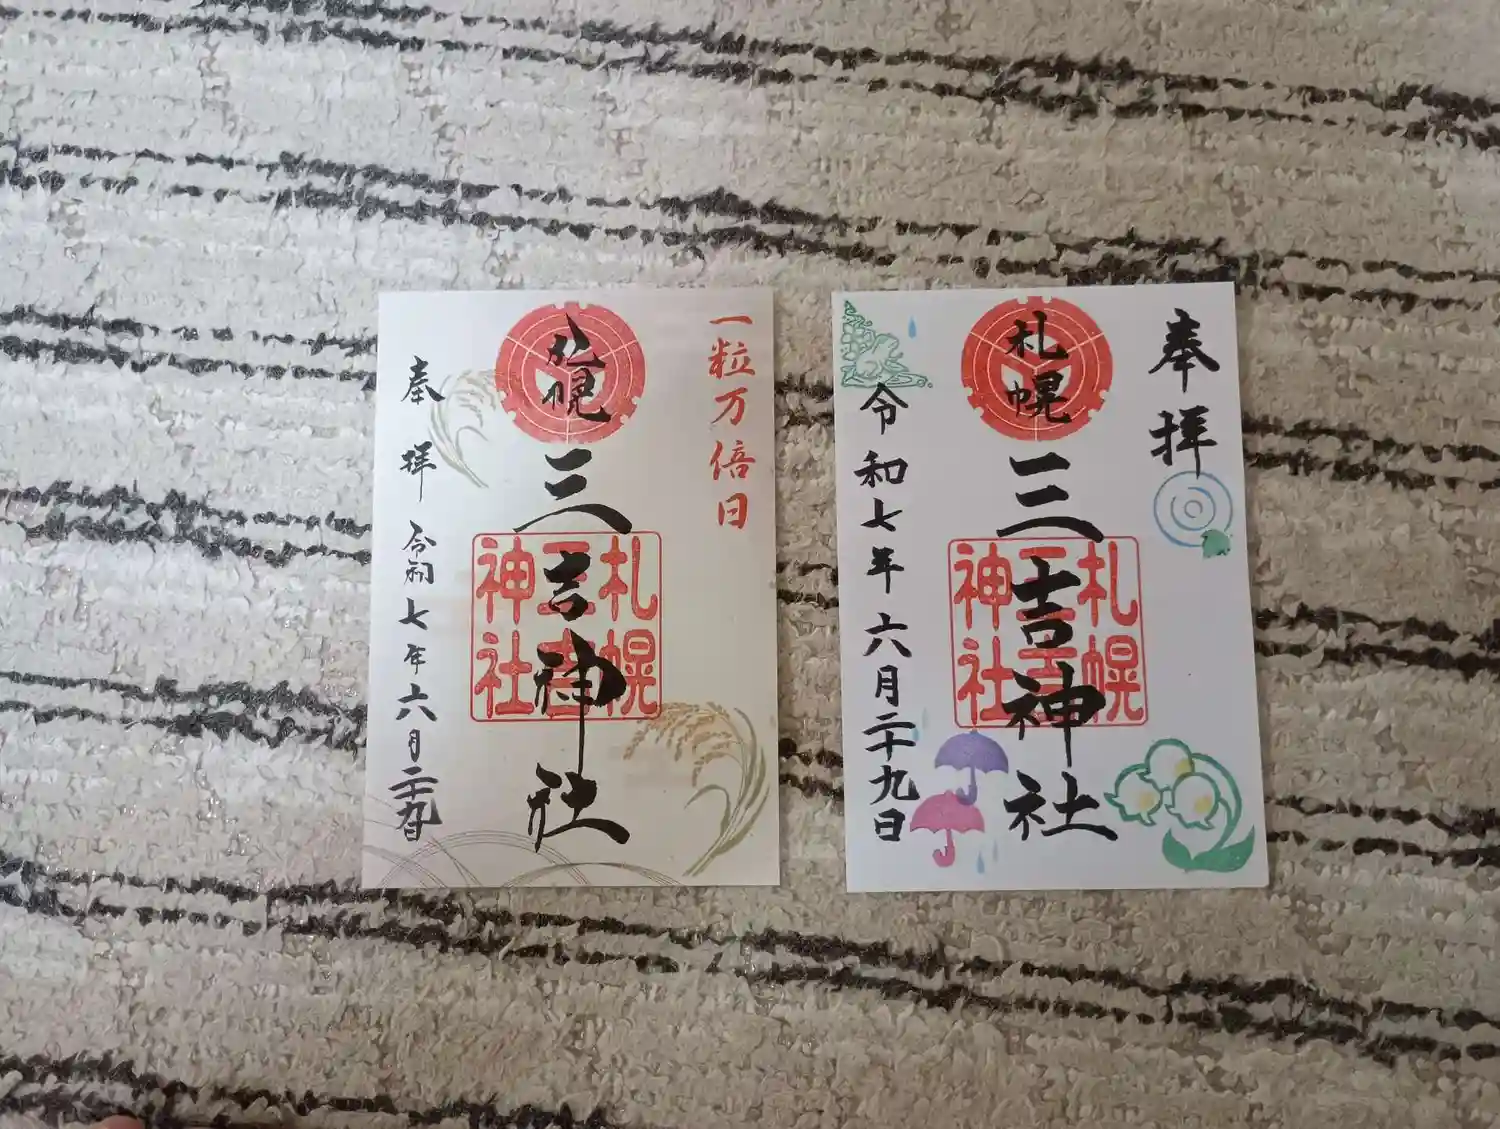 一粒万倍日
札幌
三吉神社
札幌
三吉
神社
奉拝
令和七年六月二十九日
奉拝
札幌
三吉神社
札幌
三吉
神社
令和七年六月二十九日